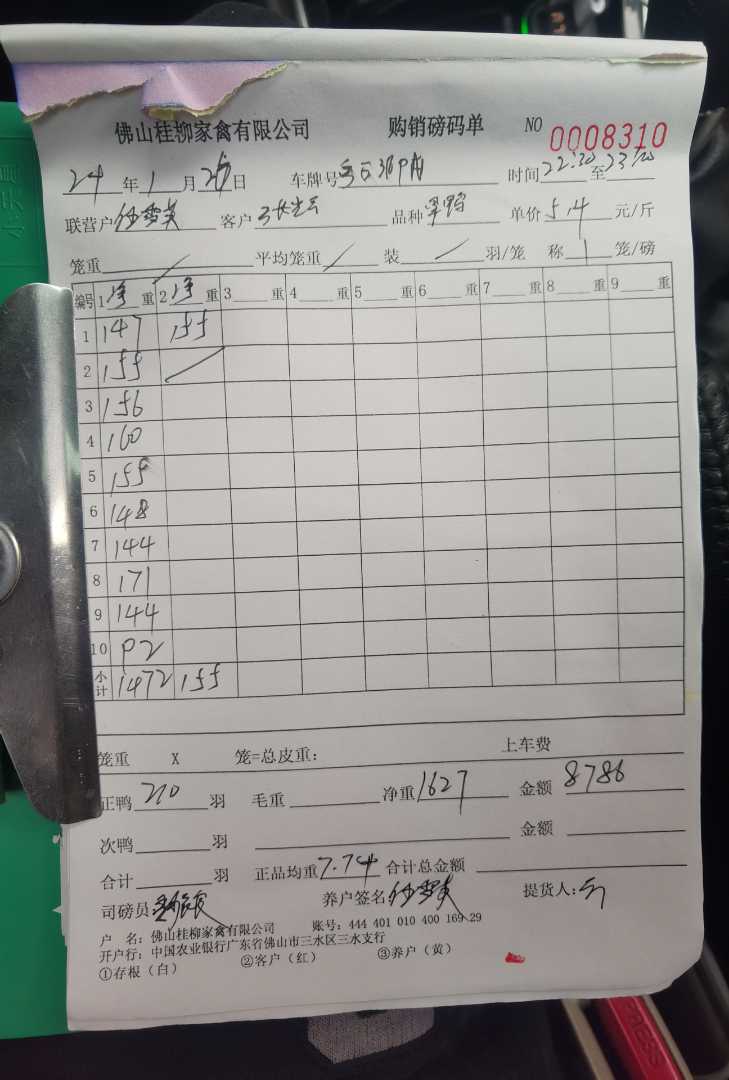 佛山桂柳家禽有限公司 购销磅码单 NO 0008310
24 年 1 月 日 车牌号 时间 22:30 至 23:20
联营户 客户 品种 单价 5.4 元/斤
笼重 / 平均笼重 / 装 / 羽/笼 称 1 笼/磅
编号 1 净 重 2 净 重 3 重 4 重 5 重 6 重 7 重 8 重 9 重
1 147 155
2 155 /
3 156
4 160
5 155
6 148
7 144
8 171
9 144
10 92
小计 1472 155
笼重 X 笼=总皮重: 上车费
正鸭 210 羽 毛重 净重 1627 金额 8786
次鸭 羽 金额
合计 羽 正品均重 7.74 合计总金额
司磅员: 养户签名: 提货人:
户 名: 佛山桂柳家禽有限公司 账号: 444 401 010 400 169 29
开户行: 中国农业银行广东省佛山市三水区三水支行
①存根（白） ②客户（红） ③养户（黄）